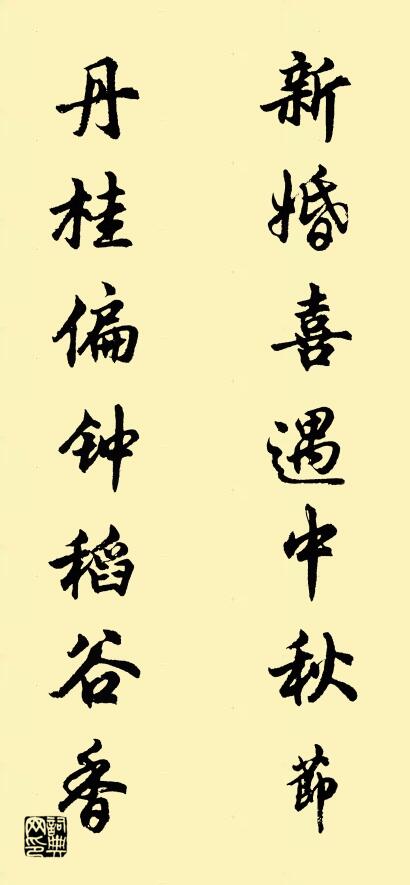 新婚喜遇中秋節
丹桂偏钟稻谷香
詞典网印